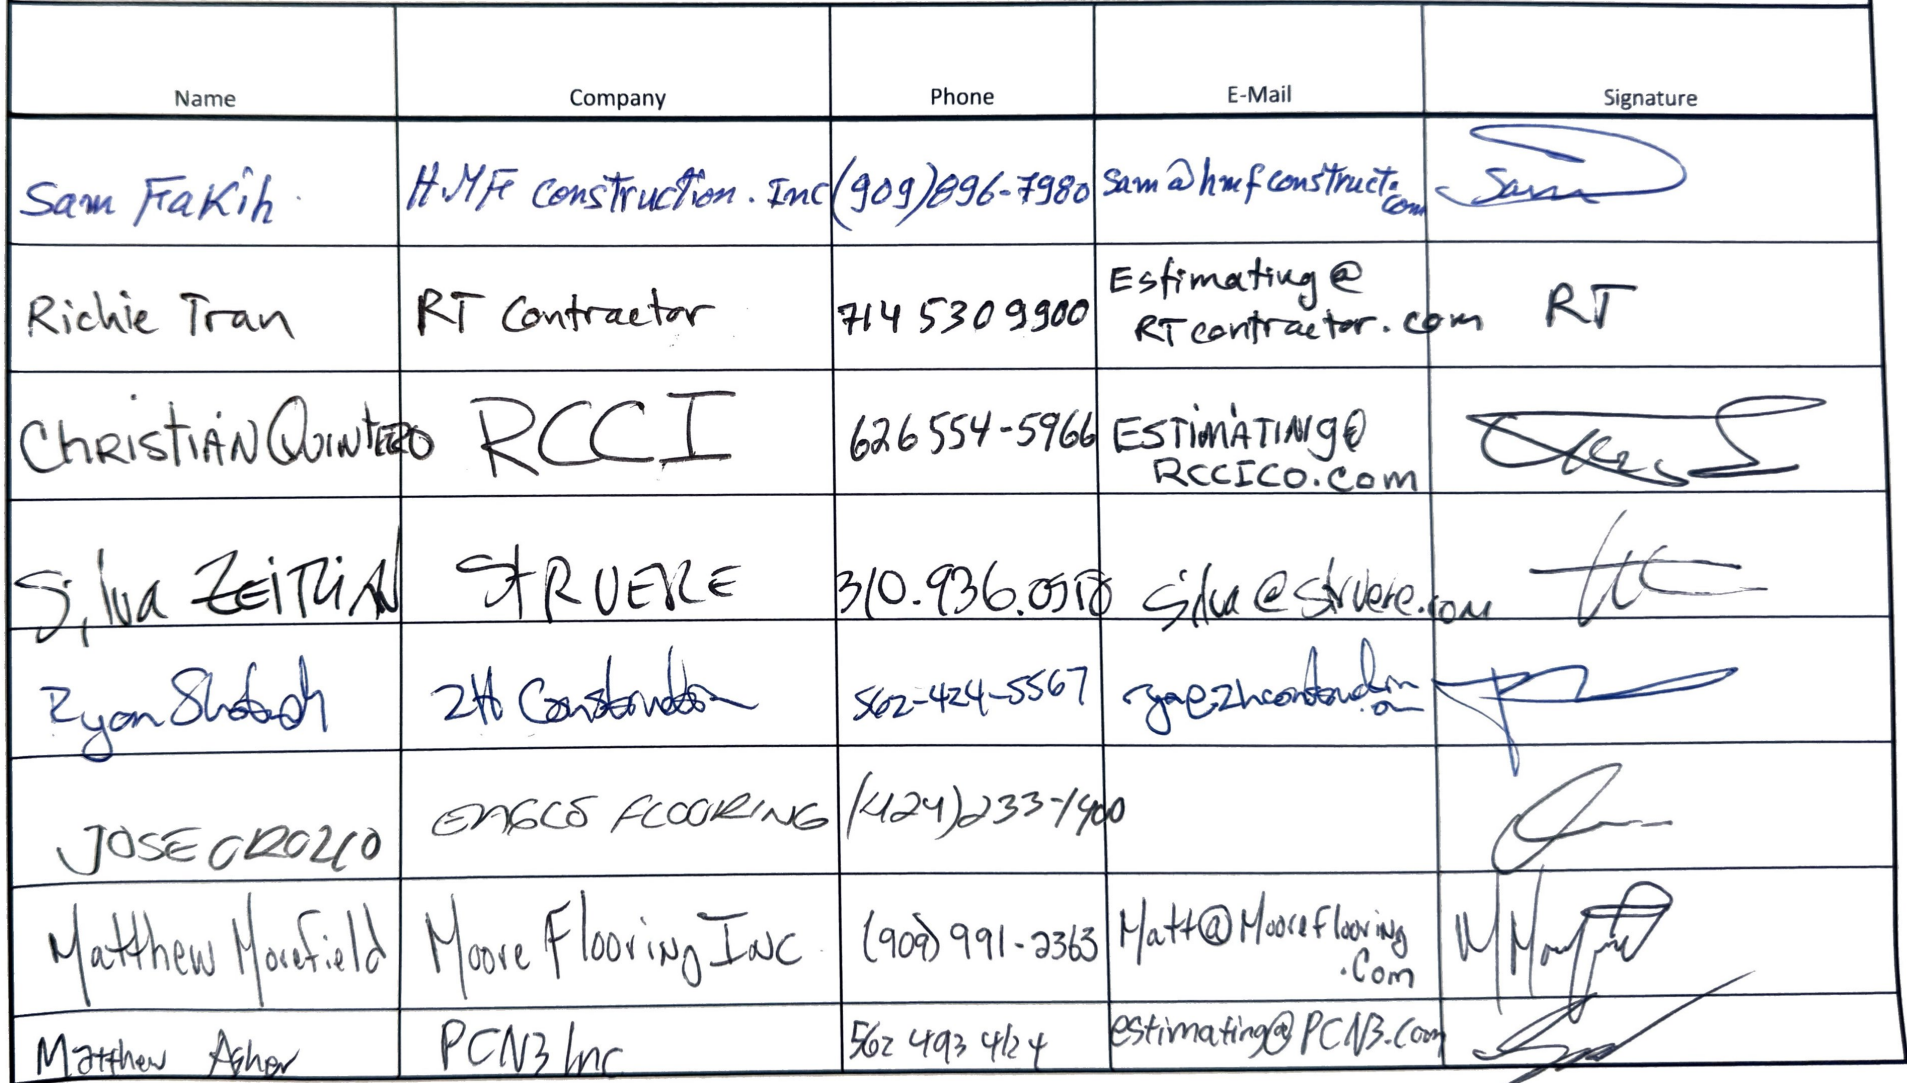 Name Company Phone E-Mail Signature
Sam Fakih HMF construction. Inc (909)896-7980 sam@hmfconstruct.
com
Richie Tran RT Contractor 714 530 9900 Estimating@
RTcontractor.com RT
CHRISTIAN QUINTERO RCCI 626 554-5966 ESTIMATING@
RCCICO.com
Silva ZEITLIAN STRUERE 310.936.0518 Silva@struere.com
Ryan 2H Construction 562-424-5567
JOSE OROZCO ENGCO FLOORING (424)233-1900
Matthew Morefield Moore Flooring INC (909) 991-2363 Matt@Mooreflooring
.Com
Matthew Asher PCN3 Inc 562 493 4124 estimating@PCN3.com